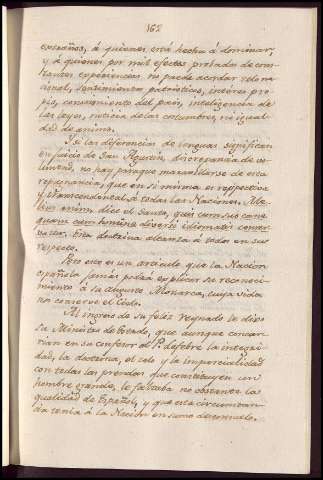 162
estraños, á quienes está hecha á dominar,
y á quienes por mil efectos probados de cons-
tantes experiencias, no puede acordar zelo na-
cional, sentimientos patrioticos, interes pro-
pio, conocimiento del pais, inteligencia de
las leyes, noticia de las costumbres, ni igual-
dad de animo.
Y si las diferencias de lenguas significan
en juicio de San Agustin, discrepancia de vo-
luntades, no hay porque maravillarse de esta
repugnancia, que en si misma es respectiva
y transcendental á todas las Naciones. Me-
lius enim, dice el Santo, quis cum suo cane
quam cum homine diversi idiomatis conver-
satur. Esta doctrina alcanza á todos en sus
respecto.
Pero este es un articulo que la Nacion
española jamas podrá explicar su reconoci-
miento á su Monarca, cuya vida
nos conserve el Cielo.
Al ingreso de su feliz Reynado le dixo
su Ministro de Estado, que aunque concur-
rian en su confesor el P. la integri-
dad, la doctrina, el zelo y la imparcialidad
con todas las prendas que constituyen un
hombre grande, le faltaba no obstante la
qualidad de Español, y que esta circunstan-
cia tenia á la Nacion en sumo desconsuelo.